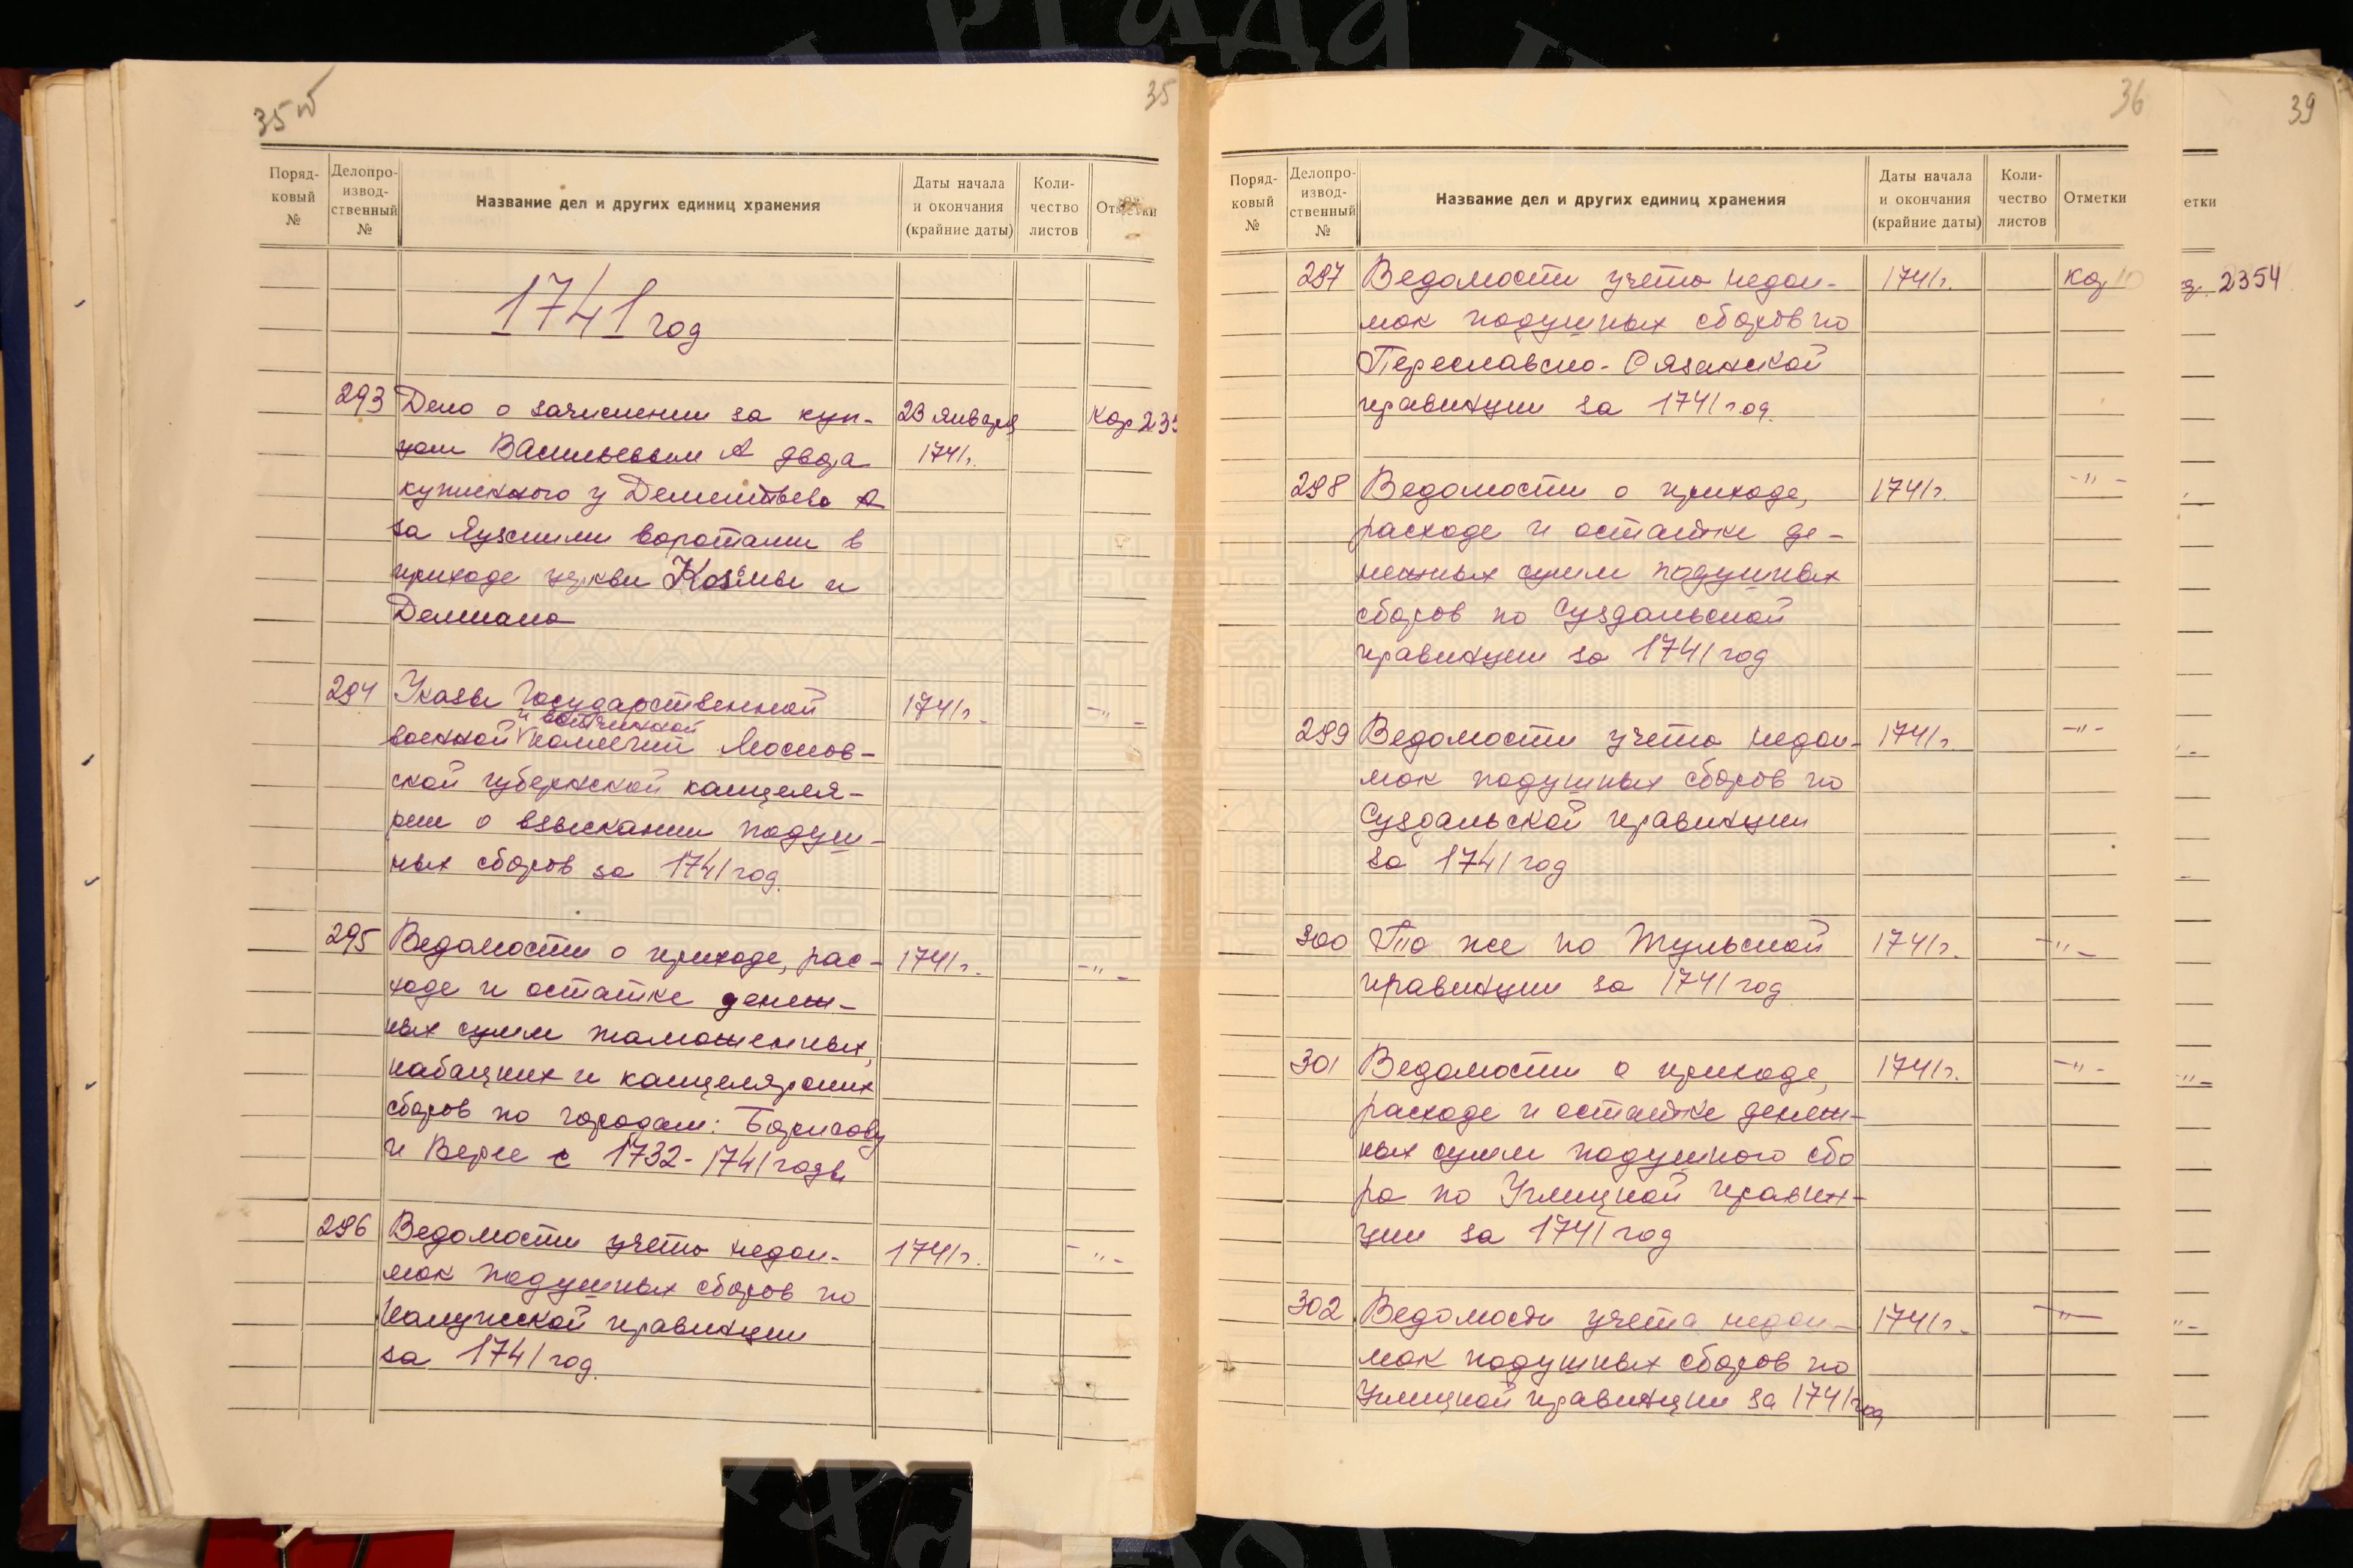 35 об
35
Поряд-
ковый
№
Делопро-
извод-
ственный
№
Название дел и других единиц хранения
Даты начала
и окончания
(крайние даты)
Коли-
чество
листов
Отметки
1741 год
293 Дело о зачислении за куп- 23 января Кар 235
цом Васильевым А двора 1741г.
купленного у Дементьева А
за Яузскими воротами в
приходе церкви Козьмы и
Демиана
294 Указы Государственной 1741г. -"-
и вотчинной
военной коллегий Москов-
ской губернской канцеля-
рии о взыскании подуш-
ных сборов за 1741 год.
295 Ведомости о приходе, рас- 1741г. -"-
ходе и остатке денеж-
ных сумм таможенных,
кабацких и канцелярских
сборов по городам: Борисову
и Верее с 1732-1741 годы
296 Ведомости учета недои- 1741г. -"-
мок подушных сборов по
Калужской провинции
за 1741 год.
36
Поряд-
ковый
№
Делопро-
извод-
ственный
№
Название дел и других единиц хранения
Даты начала
и окончания
(крайние даты)
Коли-
чество
листов
Отметки
297 Ведомости учета недои- 1741г. кор
мок подушных сборов по
Переславско-Рязанской
провинции за 1741 год.
298 Ведомости о приходе, 1741г. -"-
расходе и остатке де-
нежных сумм подушных
сборов по Суздальской
провинции за 1741 год
299 Ведомости учета недои- 1741г. -"-
мок подушных сборов по
Суздальской провинции
за 1741 год
300 То же по Тульской 1741г. -"-
провинции за 1741 год
301 Ведомости о приходе, 1741г. -"-
расходе и остатке денеж-
ных сумм подушного сбо
ра по Углицкой провин-
ции за 1741 год
302 Ведомости учета недои- 1741г. -"-
мок подушных сборов по
Углицкой провинции за 1741 год
39
етки
2354